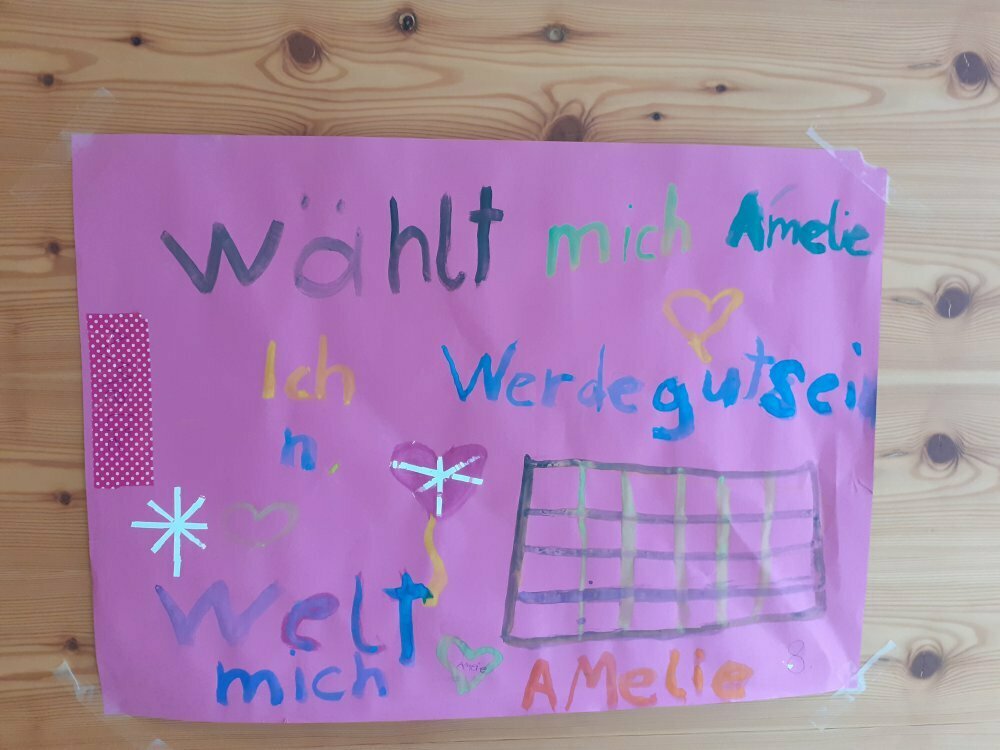 Wählt mich Amelie
Ich Werde gut sei
n.
Welt
mich Amelie AMelie 8.